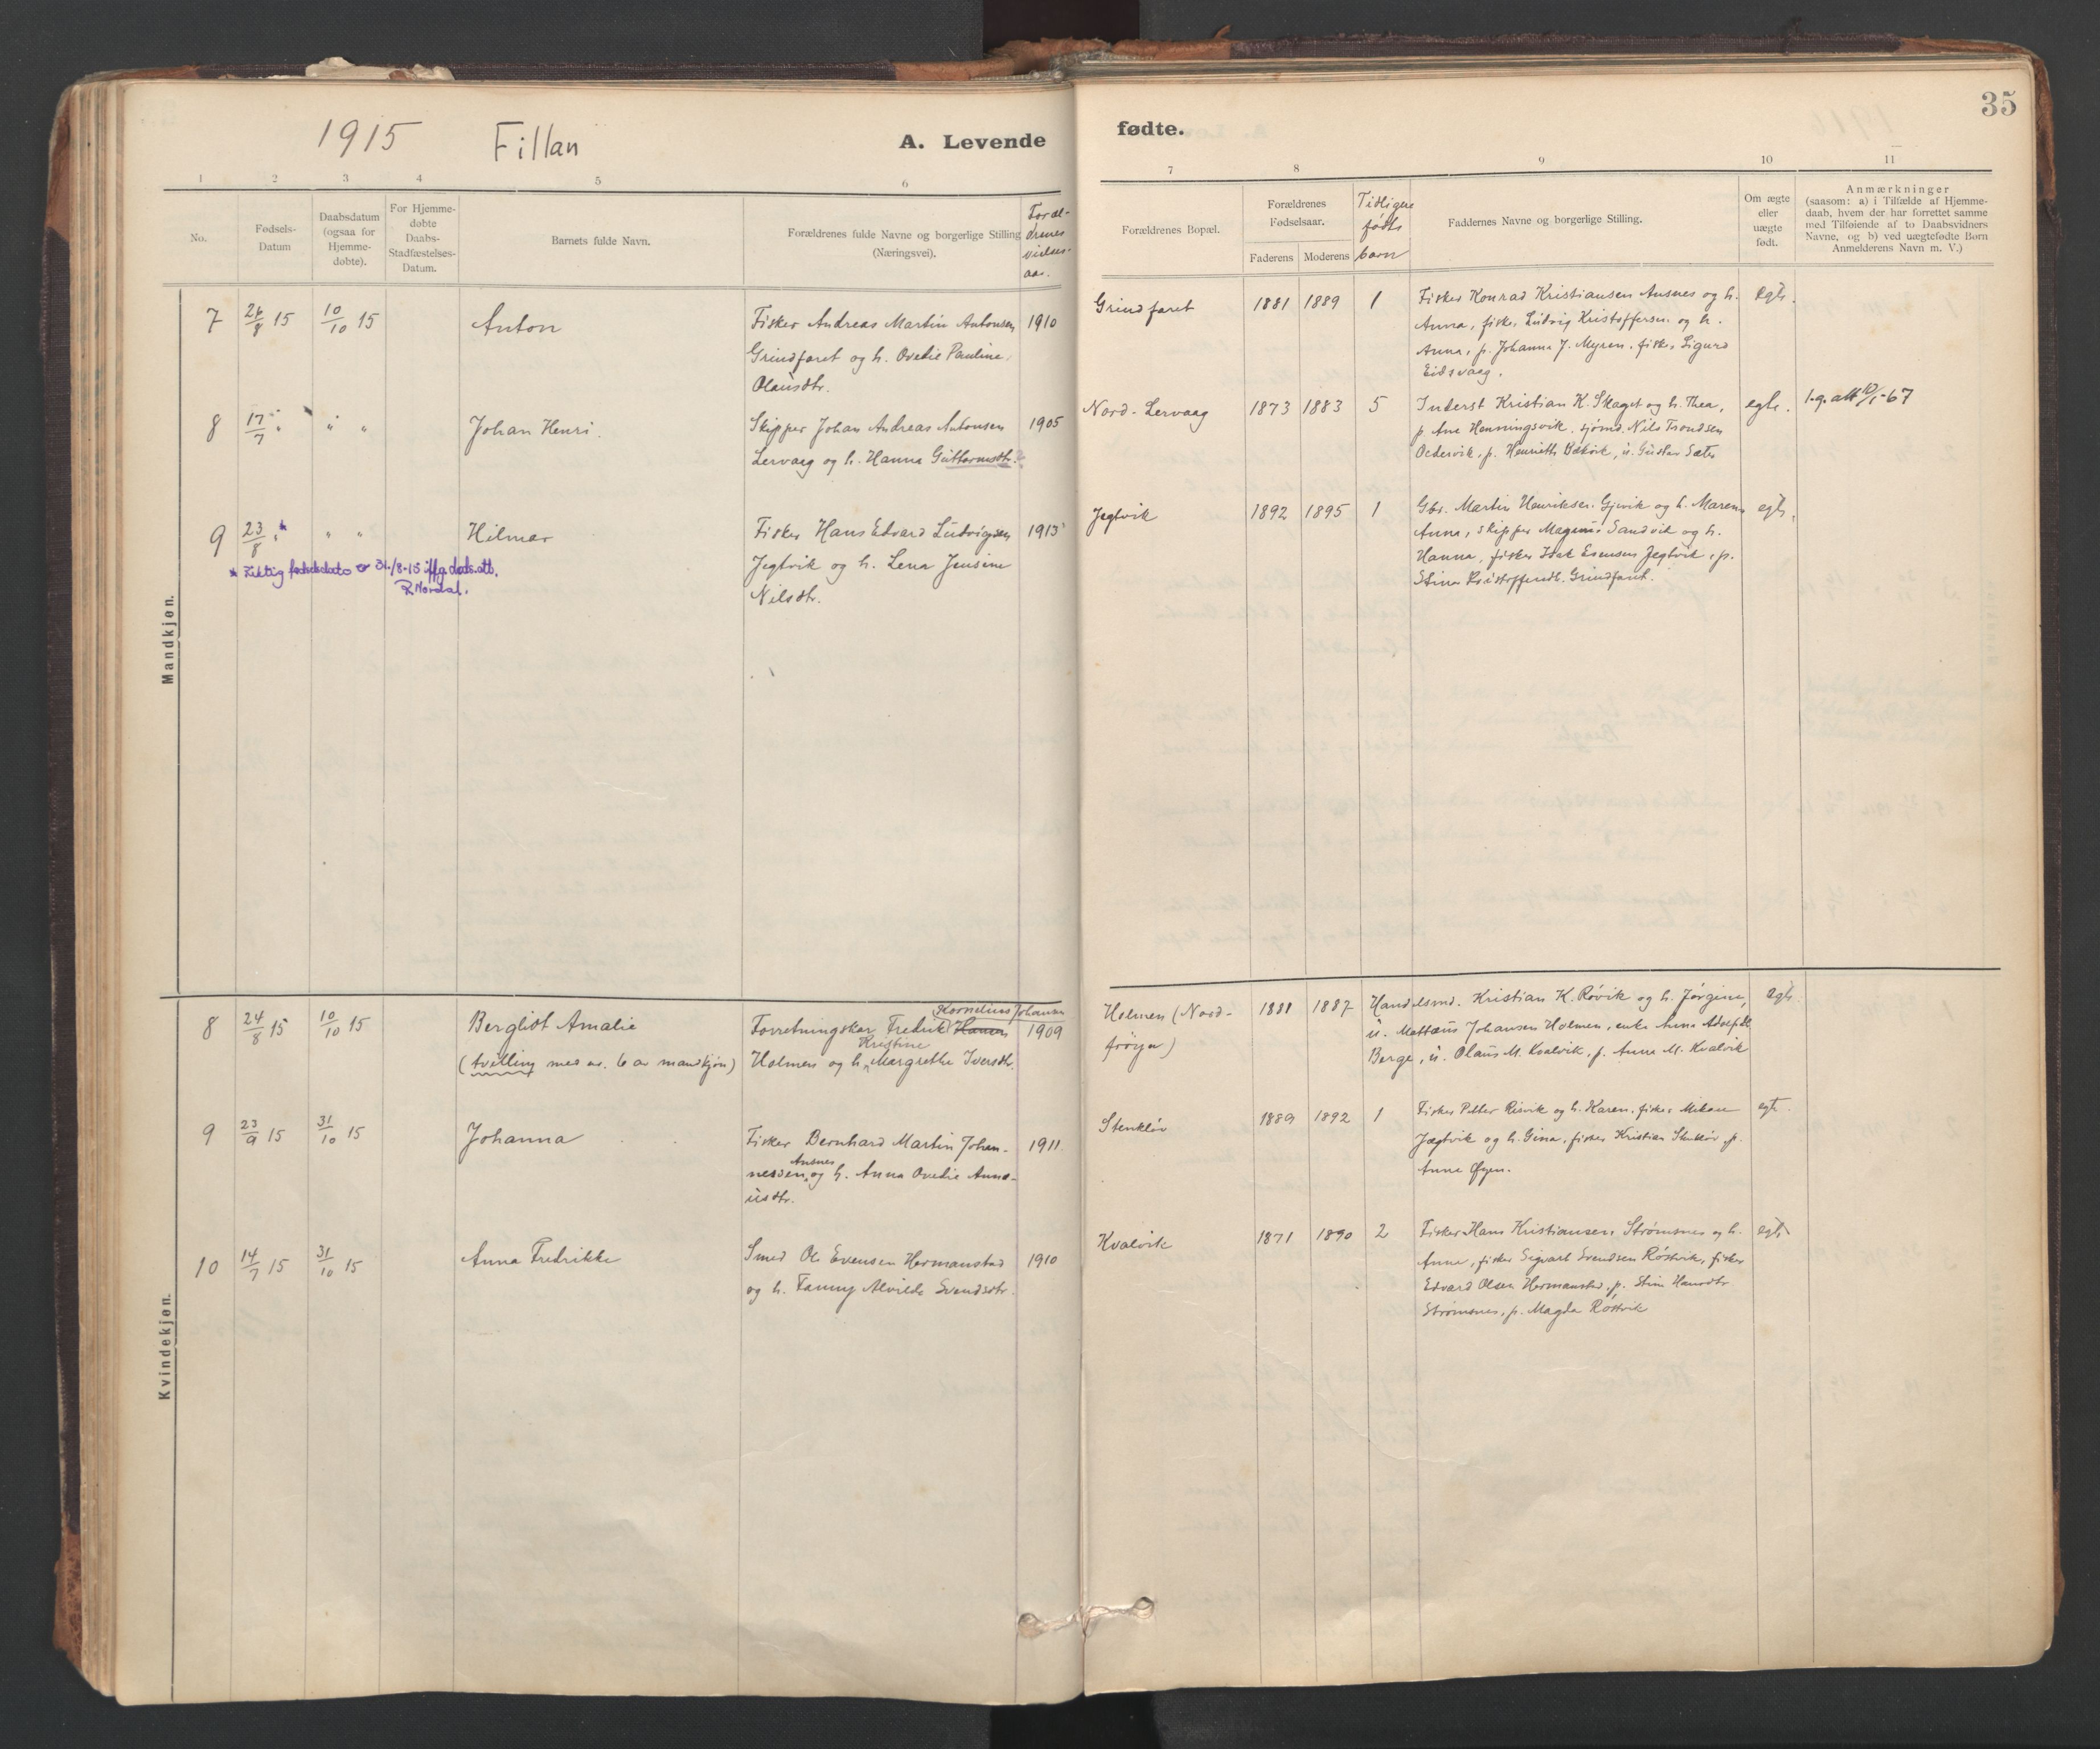 1915 Fillan
A. Levende fødte.
35
1 2 3 4 5 6 7 8 9 10 11
No.
Fødsels-
Datum
Daabsdatum
(ogsaa for
Hjemme-
døbte).
For Hjemme-
døbte
Daabs-
Stadfæstelses-
Datum.
Barnets fulde Navn.
Forældrenes fulde Navne og borgerlige Stilling
(Næringsvei).
Foræl-
drenes
vielses-
aar.
Forældrenes Bopæl.
Forældrenes
Fødselsaar.
Faderens Moderens
Tidligere
fødte
barn
Faddernes Navne og borgerlige Stilling.
Om ægte
eller
uægte
født.
Anmærkninger
(saasom: a) i Tilfælde af Hjemme-
daab, hvem der har forrettet samme
med Tilføiende af to Daabsvidners
Navne, og b) ved uægtefødte Børn
Anmelderens Navn m. V.)
Mandkjøn.
7 26/8 15 10/10 15 Anton
Fisker Andreas Martin Antonsen 1910
Grindfaret og h. Ovedie Pauline
Olausdtr.
Grindfaret 1881 1889 1
Fisker Konrad Kristiansen Ansnes og h.
Anna, fisker Ludvig Kristoffersen og h.
Anna, p. Johanna J. Myren, fisker Sigurd
Eidsvaag.
egte.
8 17/7 " " " Johan Henri.
Skipper Johan Andreas Antonsen 1905
Lervaag og h. Hanna Guttormsdtr.?
Nord-Lervaag 1873 1883 5
Inderst Kristian K. Skaget og h. Thea,
p. Ane Henningsvik, sjømd. Nils Trondsen
p. Henriette u. Gustav Sæter
egte. 67
9 23/8 " * " " Hilmar
Fisker Hans Edvard Ludvigsen 1913
Jegtvik og h. Lena Jensine
Nilsdtr.
* Riktig fødselsdato er 31/8-15 iflg. døds.att.
R. Nordal.
Jegtvik 1892 1895 1
Gbr. Martin Henriksen Gjevik og h. Maren
Anna, skipper Magnus Sandvik og h.
Hanna, fisker Isak Evensen Jegtvik, p.
Stina Kristoffersdtr. Grindfaret.
egte.
Kvindekjøn.
8 24/8 15 10/10 15 Bergliot Amalie
(tvilling med nr. 6 av mandkjøn)
Kornelius Johansen
Forretningskar Fredrik Hansen 1909
Kristine
Holmen og h. Margrethe Iversdtr.
Holmen (Nord-
frøya)
1881 1887
Handelsmd. Kristian K. Røvik og h. Jørgine,
u. Mattæus Johansen Holmen, enke Anna Adolfsdtr.
Berge, u. Olaus M. Kvalvik, p. Anna M. Kvalvik
egte.
9 23/9 15 31/10 15 Johanna
Fisker Bernhard Martin Johan- 1911
Ansnes
nessen og h. Anna Ovedie Amd-
usdtr.
Stenkløv 1889 1892 1
Fisker Petter Risvik og h. Karen, fisker Mikal
Jægtvik og h. Gina, fisker Kristian Stenkløv, p.
Anna Øyen.
egte.
10 14/7 15 31/10 15 Anna Fredrikke
Smed Ole Evensen Hermanstad 1910
og h. Fanny Alvilde Svendsdtr.
Kvalvik 1871 1890 2
Fisker Hans Kristiansen Strømsnes og h.
Anna, fisker Sigvart Svendsen Røstvik, fisker
Edvard Olsen Hermanstad, p. Stina Hansdtr.
Strømsnes, p. Magda Røstvik
egte